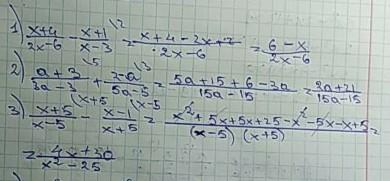 1) \frac{x+4}{2x-6} - \frac{x+1}{x-3}^{\backslash 2} = \frac{x+4-2x+2}{2x-6} = \frac{6-x}{2x-6}
2) \frac{a+3}{3a-3}^{\backslash 5} + \frac{2-a}{5a-5}^{\backslash 3} = \frac{5a+15+6-3a}{15a-15} = \frac{2a+21}{15a-15}
3) \frac{x+5}{x-5}^{\backslash x+5} - \frac{x-1}{x+5}^{\backslash x-5} = \frac{x^2+5x+5x+25-x^2-5x-x+5}{(x-5)(x+5)} =
= \frac{4x+30}{x^2-25}